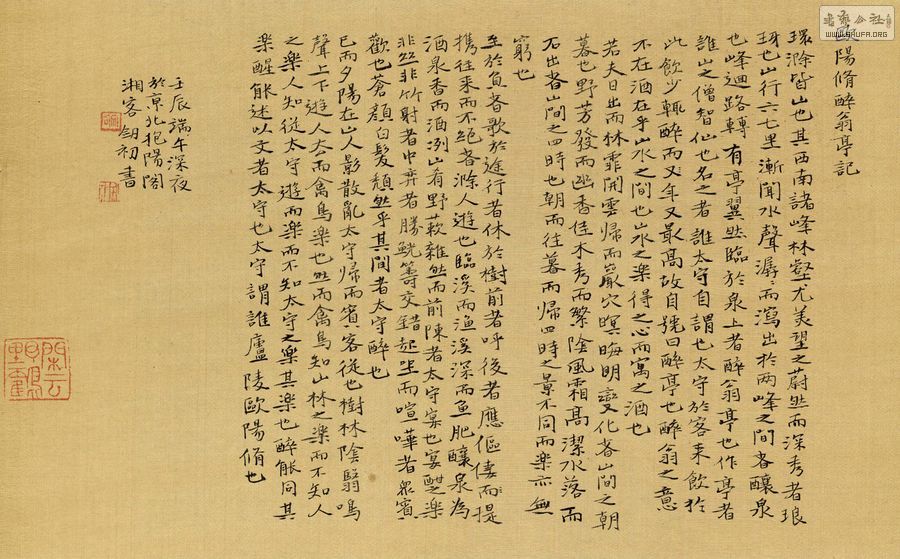 歐陽脩醉翁亭記
環滁皆山也其西南諸峰林壑尤美望之蔚然而深秀者琅
琊也山行六七里漸聞水聲潺々而瀉出於两峰之間者釀泉
也峰迴路轉有亭翼然臨於泉上者醉翁亭也作亭者
誰山之僧智仙也名之者誰太守自謂也太守於客来飲於
此飲少輒醉而又年又最高故自號曰醉亭也醉翁之意
不在酒在乎山水之間也山水之楽得之心而寓之酒也
若夫日出而林霏開雲歸而巖穴暝晦明變化者山間之朝
暮也野芳發而幽香佳木秀而繁陰風霜高潔水落而
石出者山間之四時也朝而往暮而歸四時之景不同而楽亦無
窮也
至於負者歌於途行者休於樹前者呼後者應傴僂而提
携往来而不絕者滁人遊也臨溪而漁溪深而魚肥釀泉為
酒泉香而酒冽山肴野蔌雜然而前陳者太守宴也宴酣之楽
非丝非竹射者中弈者勝觥籌交錯起坐而喧嘩者衆賓
歡也蒼顏白髮頹然乎其間者太守醉也
已而夕陽在山人影散亂太守歸而賓客從也樹林陰翳鳴
聲上下遊人去而禽鳥楽也然而禽鳥知山林之楽而不知人
之楽人知從太守遊而楽而不知太守之楽其楽也醉能同其
楽醒能述以文者太守也太守謂誰廬陵歐陽脩也
壬辰端午深夜
於京北抱陽閣
湘客 初書
閑雲
野鶴
WWW.SHUFA.ORG